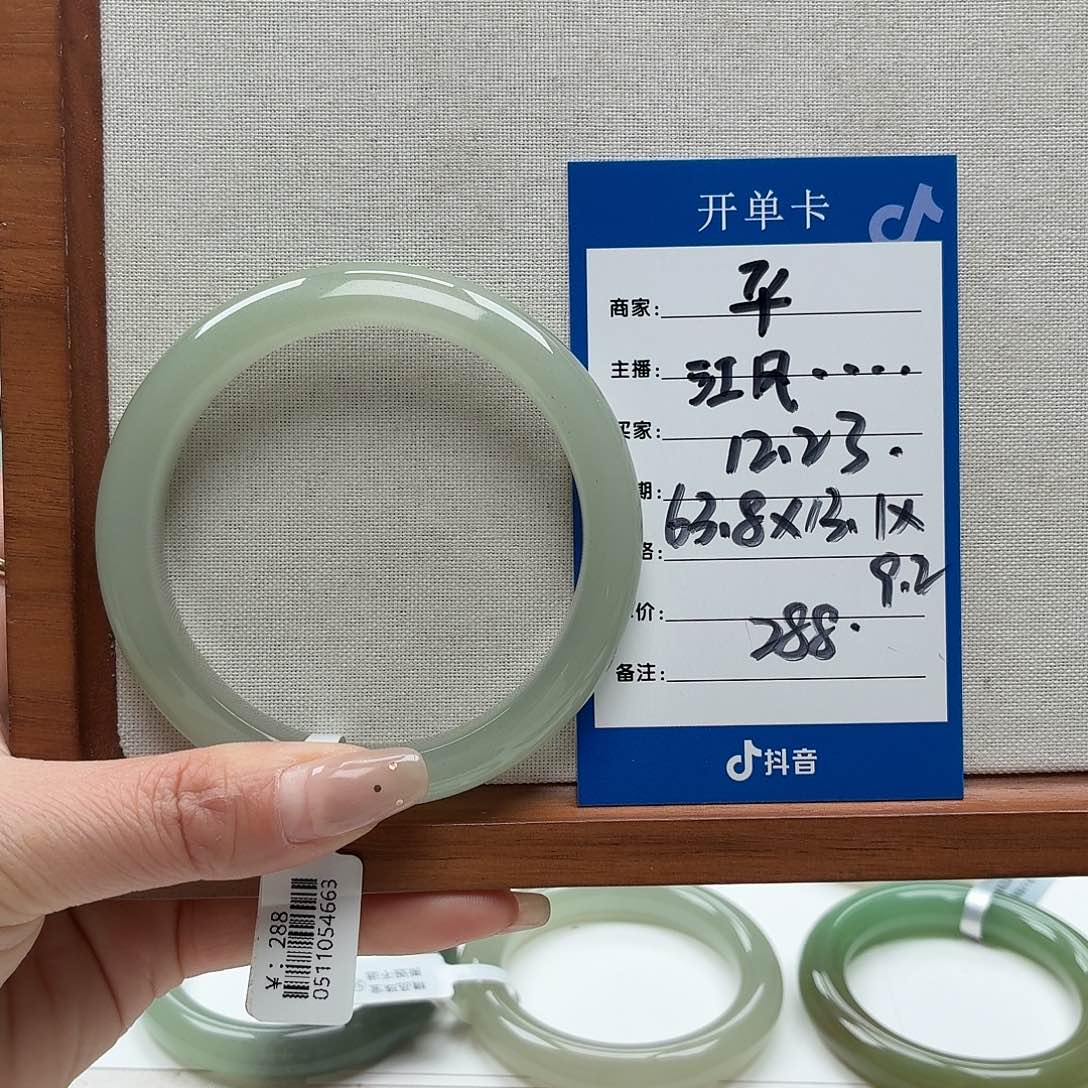 开单卡
商家: 平
主播: 江风....
买家: 12.23.
期: 63.8×13.1×
格: 9.2
价: 288.
备注:
抖音
¥: 288
0511054663